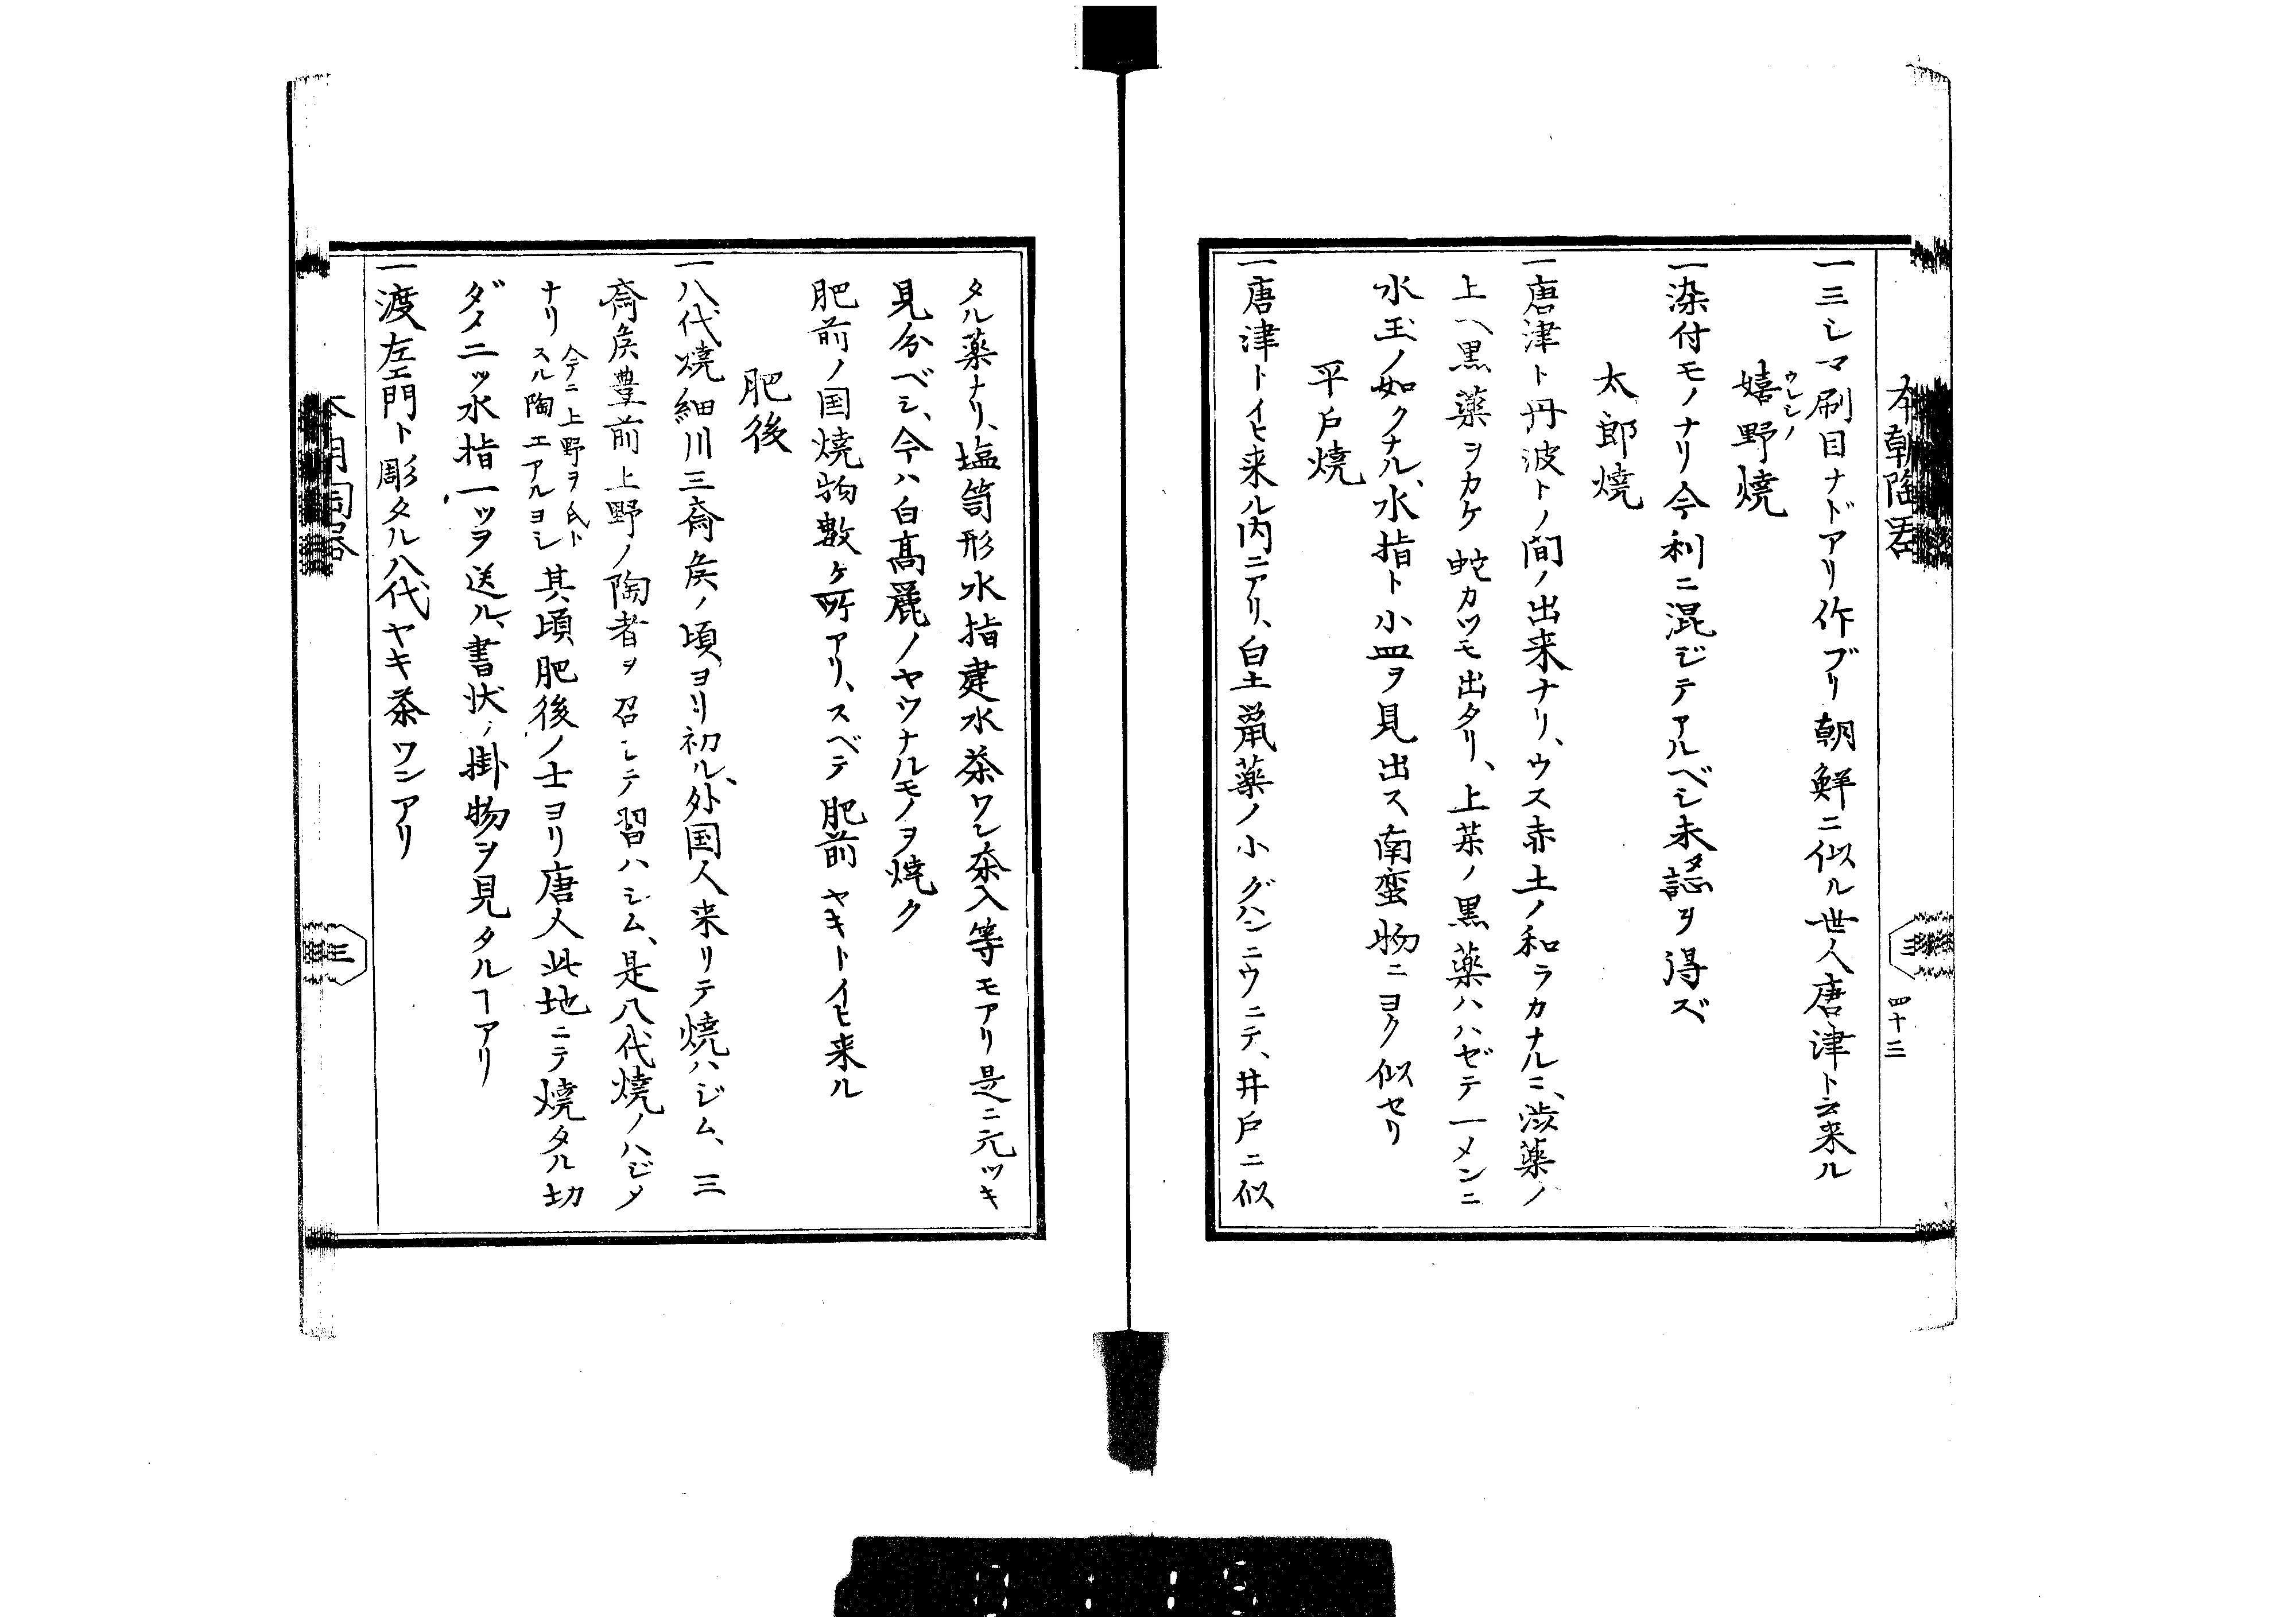 本朝陶器
四十三
一三シマ刷目ナドアリ作ブリ朝鮮ニ似ル世人唐津ト云来ル
嬉野焼
ウレシノ
一染付モノナリ今利ニ混ジテアルベシ未タ認ヲ得ズ
太郎焼
一唐津ト丹波トノ間ノ出来ナリ、ウス赤土ノ和ラカナルニ、渋薬ノ
上ヘ黒薬ヲカケ蛇カツモ出タリ、上菜ノ黒薬ハハゼテ一メンニ
水玉ノ如クナル、水指ト小皿ヲ見出ス南蛮物ニヨク似セリ
平戸焼
一唐津トイヒ来ル内ニアリ、白土鼠薬ノ小グハンニウニテ、井戸ニ似
タル薬ナリ、塩笥形水指建水茶ワン茶入等モアリ是ニ元ツキ
見分ベシ、今ハ白髙麗ノヤウナルモノヲ焼ク
肥前ノ国焼物數ケ所アリ、スベテ肥前ヤキトイヒ来ル
肥後
一八代焼細川三齋矦ノ頃ヨリ初ル、外国人来リテ焼ハジム、三
齋矦豊前上野ノ陶者ヲ召シテ習ハシム、是八代焼ノハジメ
ナリ 今ニ上野ヲ氏ト
スル陶工アルヨシ 其頃肥後ノ士ヨリ唐人此地ニテ焼タル切
ダメニツ水指一ツヲ送ル、書状ノ掛物ヲ見タルヿアリ
一渡左エ門ト彫タル八代ヤキ茶ワンアリ